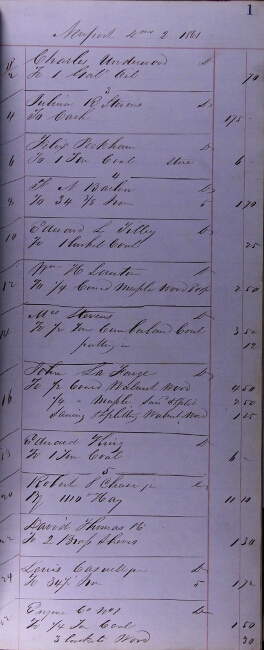 1
Newport 4mo 2 1861
Charles Underwood Dr
2 To 1 Gall Oil 70
3
Julius R Stevens Dr
4 To Cash 175 -
Felix Peckham Dr
6 To 1 Ton Coal 6 -
4
N Barker Dr
8 To 34 Iron 5 170
Edward L Tilley Dr
10 To 1 bushel Coal 25
Wm H Dr
12 To 1/4 Cord Maple Wood 2 50
Mrs Stevens Dr
14 To 1/2 Ton Cumberland Coal 3 50
putting in
John La Farge Dr
16 To 1/2 Cord Walnut Wood 4 50
1/4 " Maple 2 50
Sawing & Splitting Walnut Wood
Edward King Dr
18 To 1 Ton Coal 6 -
5
Robert P Chase jr Cr
20 By Hay 11 10
David Thomas
22 To 2 Brass 1 30
Lewis Dr
24 To Iron 5 172
Engine Co No 1 Dr
To 1/4 Ton Coal 1 50
3 baskets Wood 30